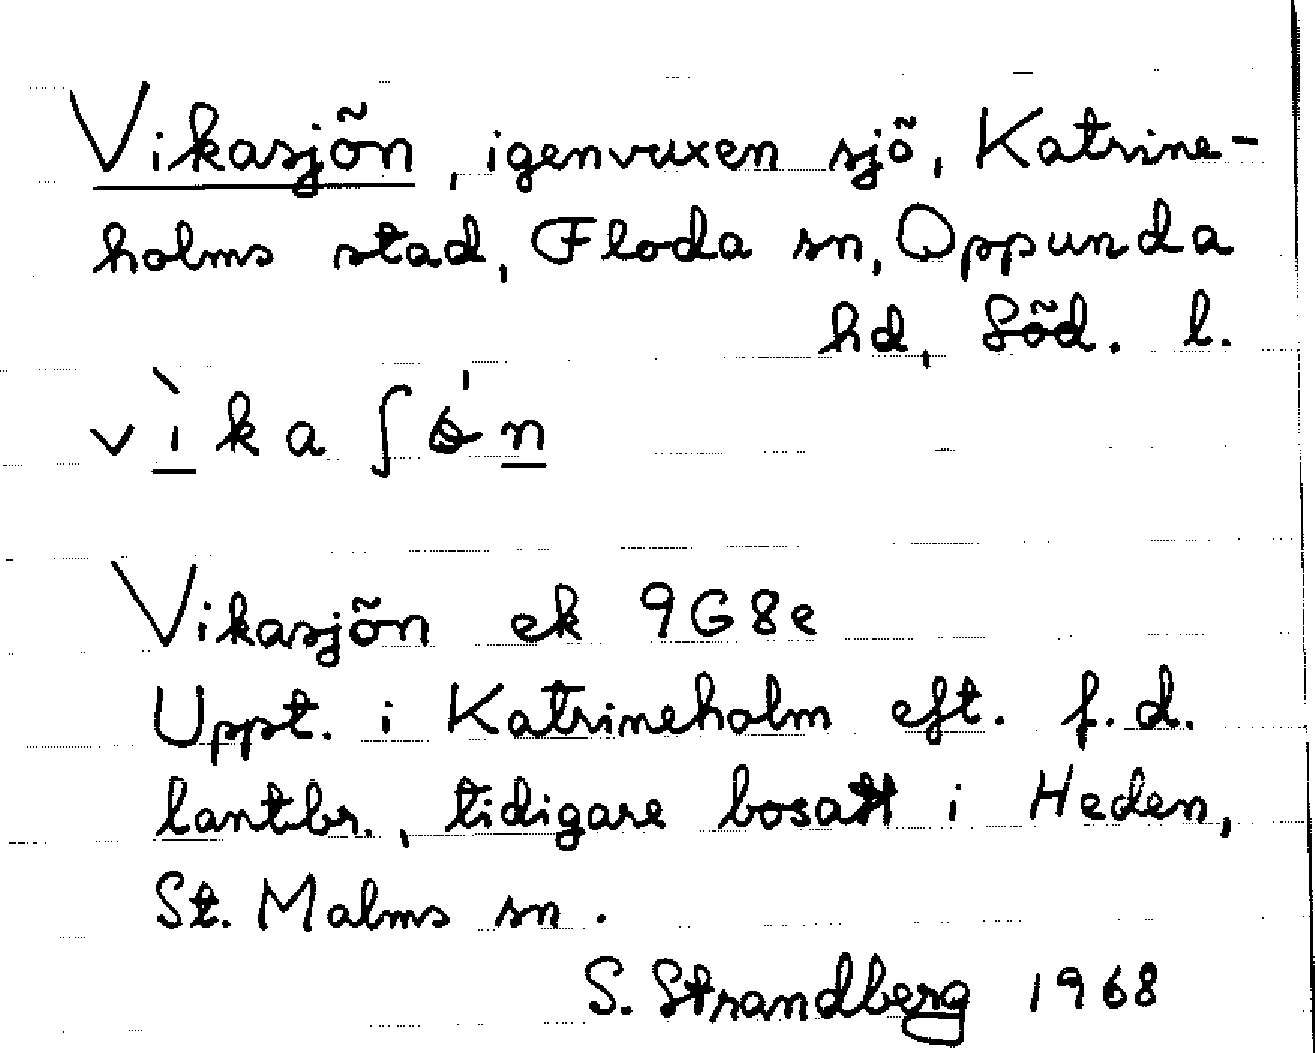 Vikasjön, igenvuxen sjö, Katrine-
holms stad, Floda sn, Oppunda
hd, Söd. l.
vìka ʃ n
Vikasjön ek 9G8e
Uppt. i Katrineholm eft. f.d.
lantbr., tidigare bosatt i Heden,
St. Malms sn.
S. Strandberg 1968